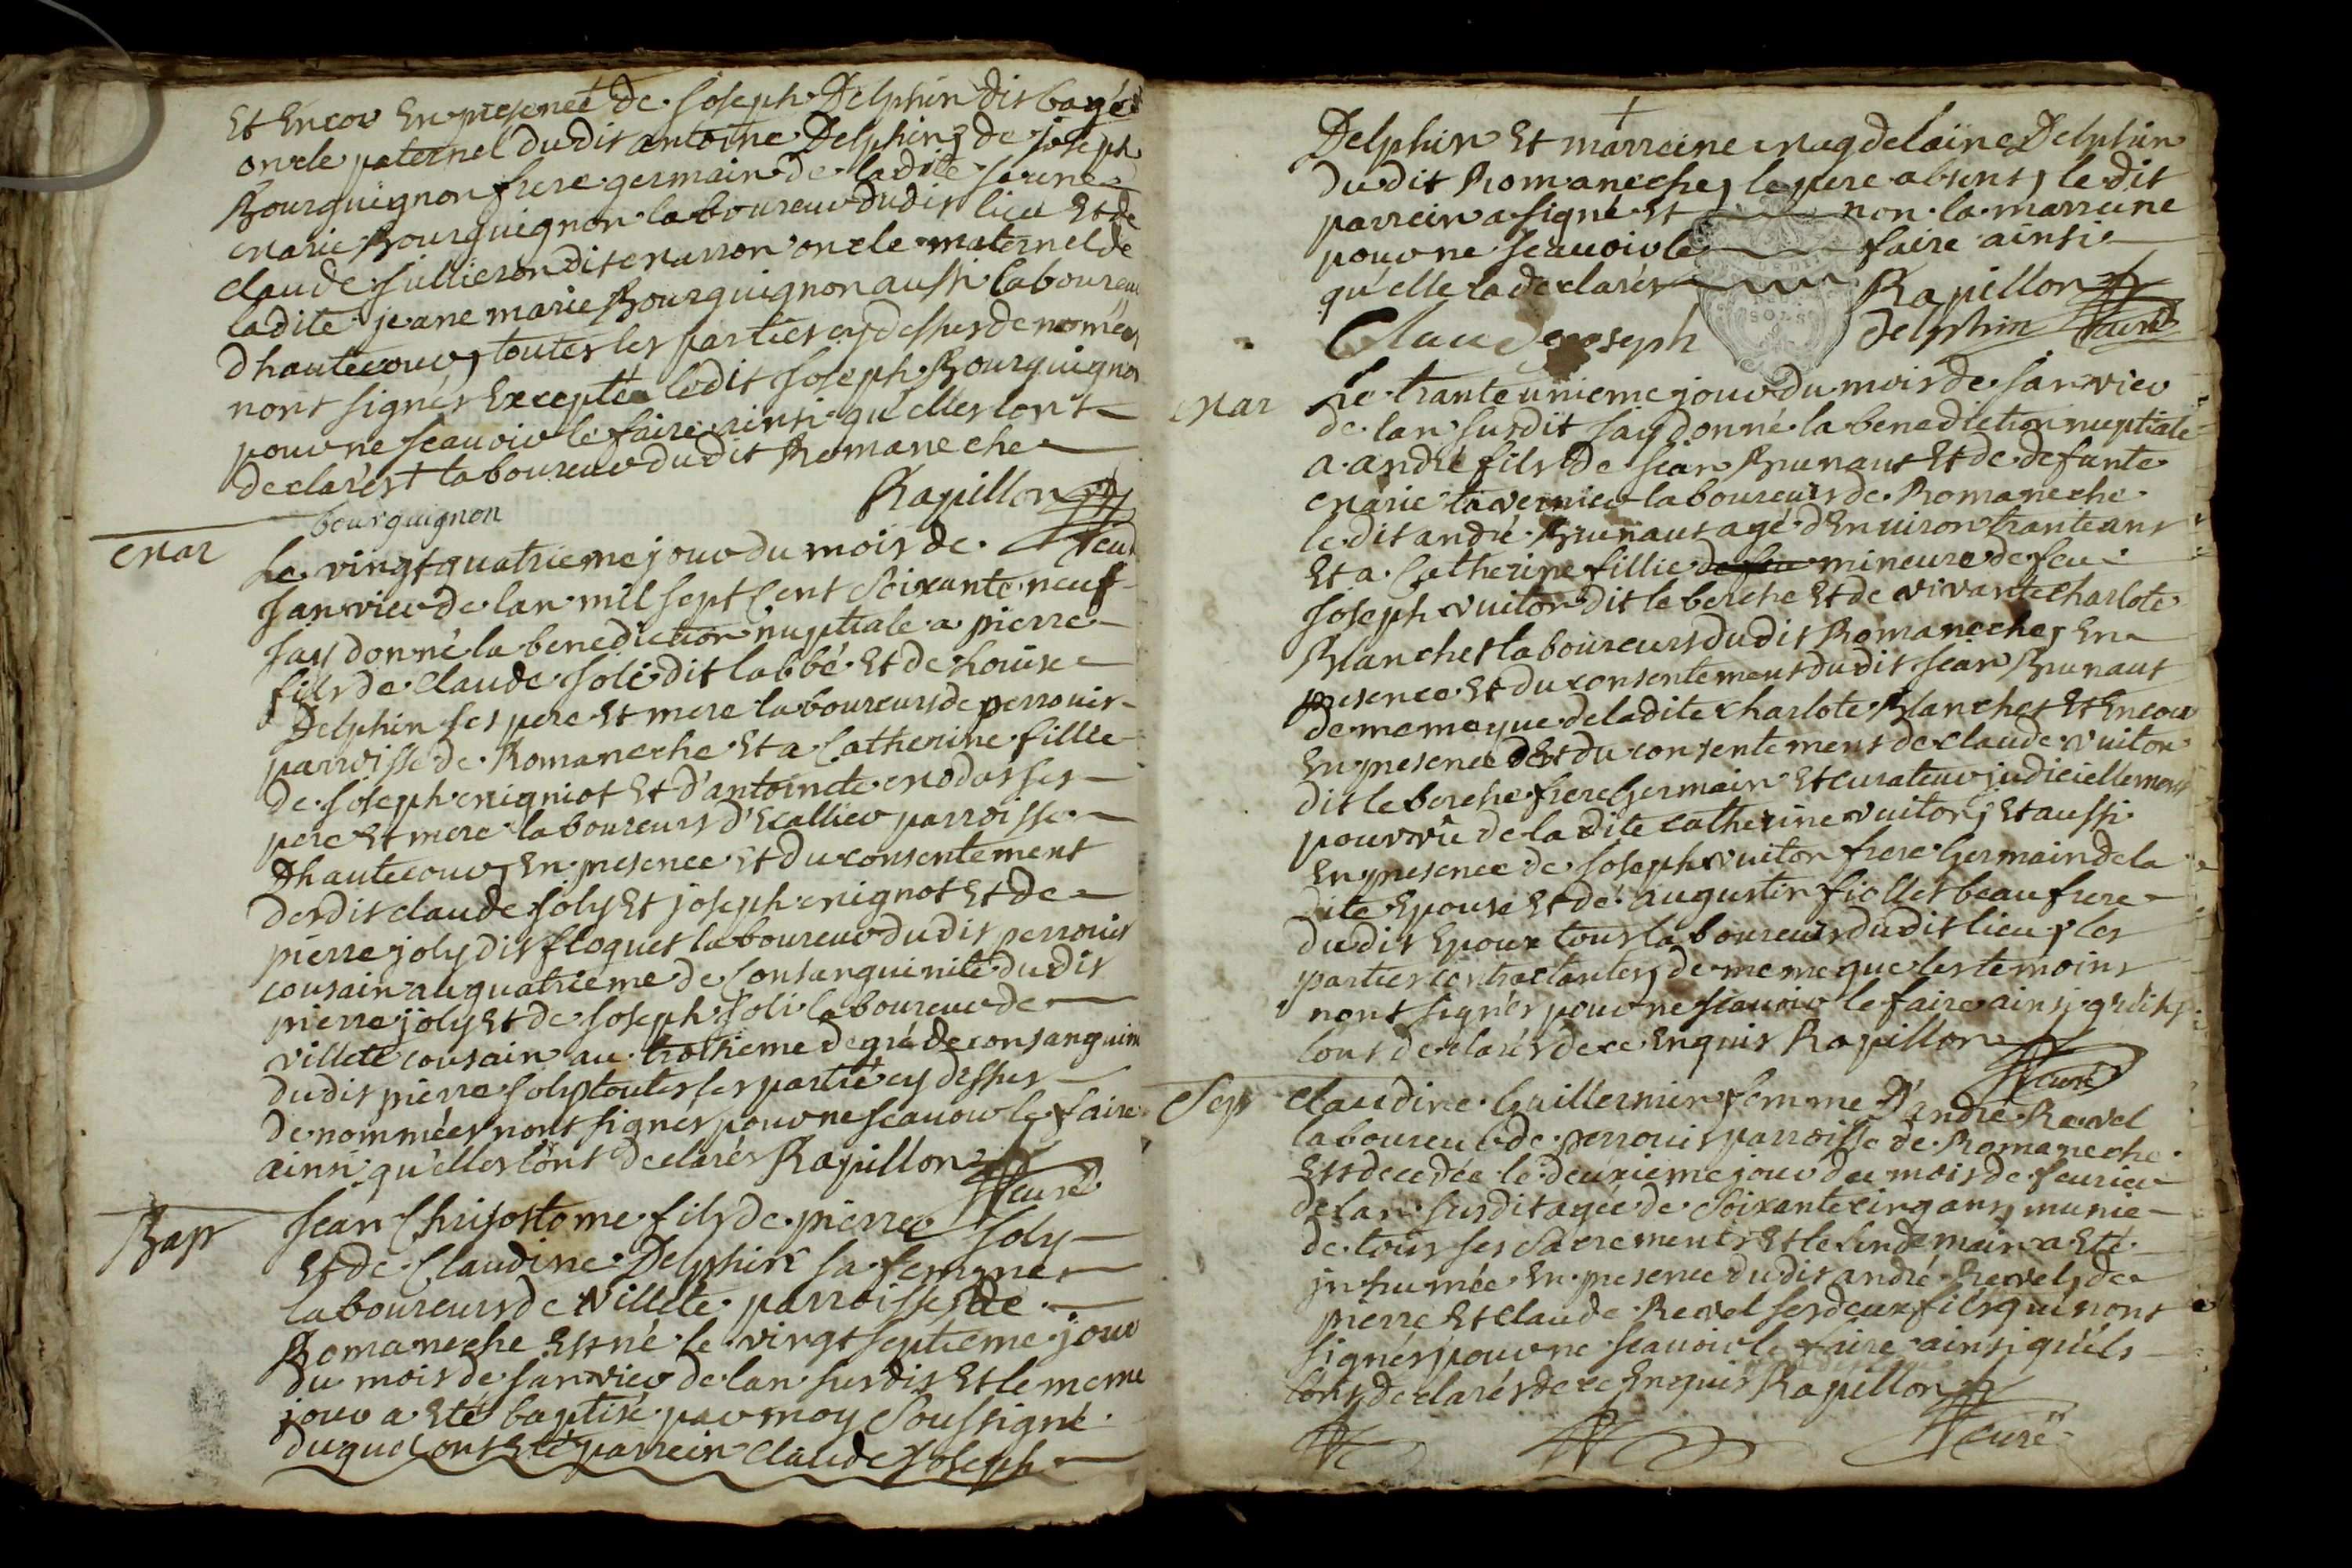 Et Encor En presence de Joseph Delphin dit bagé
oncle paternel dudit antoine Delphin, de joseph
Bourguignon frere germain de ladite Jeane
Marie Bourguignon laboureur dudit lieu Et de
claude Jullieron dit Marron oncle maternel de
ladite jeane marie Bourguignon aussi laboureur
dhautecour, toutes les parties cy dessus denomées
nont signés Excepté ledit Joseph Bourguignon
pour ne scauoir le faire ainsi qu'elles lont
declarés + laboureur dudit Romaneche
Rapillon
bourguignon
curé
Mar
Le vingt quatrieme jour du mois de
Janvier de lan mil sept Cent Soixante neuf
Jay donné la benediction nuptiale a pierre
fils de claude Joli dit labbé Et de Louise
Delphin ses pere Et mere laboureurs de perrouis
parroisse de Romaneche Et a Catherine fillie
de Joseph Migniot Et d'antoinete Modas ses
pere Et mere laboureurs d'Ecallier parroisse
Dhautecour, En presence Et du consentement
desdits claude Joly Et joseph Mignot Et de
pierre joly dit floquet laboureur dudit perrouis
cousain au quatrieme de Consanguinité dudit
pierre joly Et de Joseph Joli laboureur de
villete cousain au troisieme degré de consanguini
dudit pierre Joly toutes les partié cy dessus
denommées nont signés pour ne scauoir le faire
ainsi qu'elles lont declarés Rapillon
curé
Bap
Jean Chrisostome fils de pierre Joly
Et de Claudine Delphin sa femme
laboureurs de Villete parroisse de
Romaneche Est né le vingt septieme jour
du mois de Janvier de lan susdit Et le meme
jour a Eté baptisé par moy Soussigné
duquel ont Eté parrein Claude Joseph
+
Delphin Et marreine Magdelaine Delphin
dudit Romaneche, le pere absent, le dit
parrein a signé Et non la marreine
pour ne scauoir le faire ainsi
qu'elle la declaré
Rapillon
Claude joseph delphin curé
Mar
Le trante unieme jour du mois de Janvier
de lan susdit Jay donné la benediction nuptiale
a andré fils de Jean Brunaut Et de defunte
Marie tavernier laboureurs de Romaneche
le dit andré Brunaut agé d'Enuiron trante ans
Et a Catherine fillie de feu mineure de feu
Joseph vuiton dit le berche Et de vivante charlote
Blanchet laboureurs dudit Romaneche, En
presence Et du consentement dudit Jean Brunaut
de meme que de ladite charlote Blanchet Et Encor
En presence Et du consentement de claude vuiton
dit le berche frere Germain Et curateur judiciellement
pourvû de la dite catherine vuiton, Et aussi
En presence de Joseph vuiton frere Germain de la
dite Epouse Et de augustin fiollet beau frere
dudit Epoux tous laboureurs dudit lieu, les
parties contractantes, de meme que les temoins
nont signés pour ne scauoir le faire ainsi qu'ils
lont declarés de ce Enquis Rapillon
curé
Sep
Claudine Guillermin femme d'andré Revel
laboureur de perrouis parroisse de Romaneche
Est decedée le deuxieme jour du mois de feurier
de lan susdit agée de Soixante cinq ans, munie
de tous ses Sacrements Et le lendemain a Eté
inhumée En presence dudit andré Revel, de
pierre Et claude Revel ses deux fils qui nont
signés pour ne scauoir le faire ainsi qu'ils
lont declarés de ce Enquis Rapillon
curé